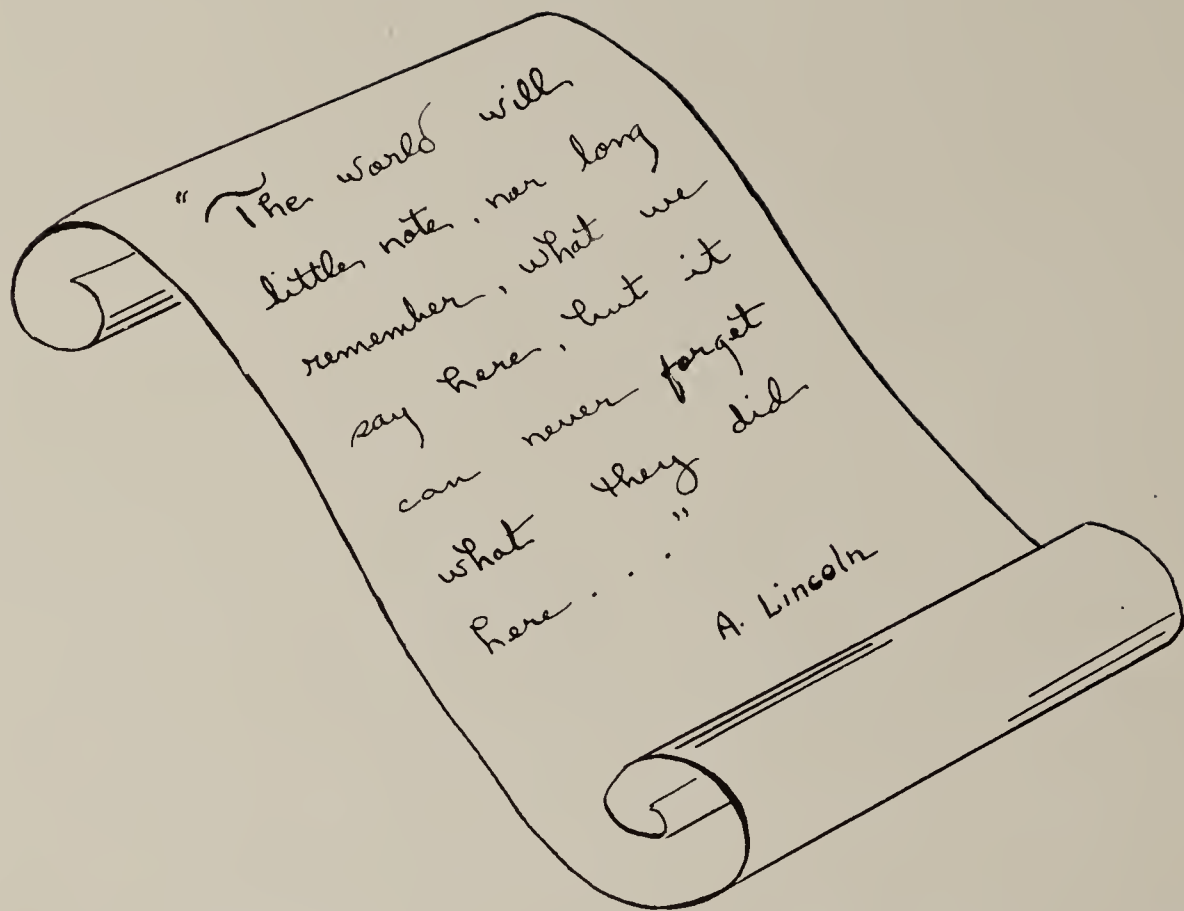 "The world will
little note, nor long
remember, what we
say here, but it
can never forget
what they did
here . . ."
A. Lincoln